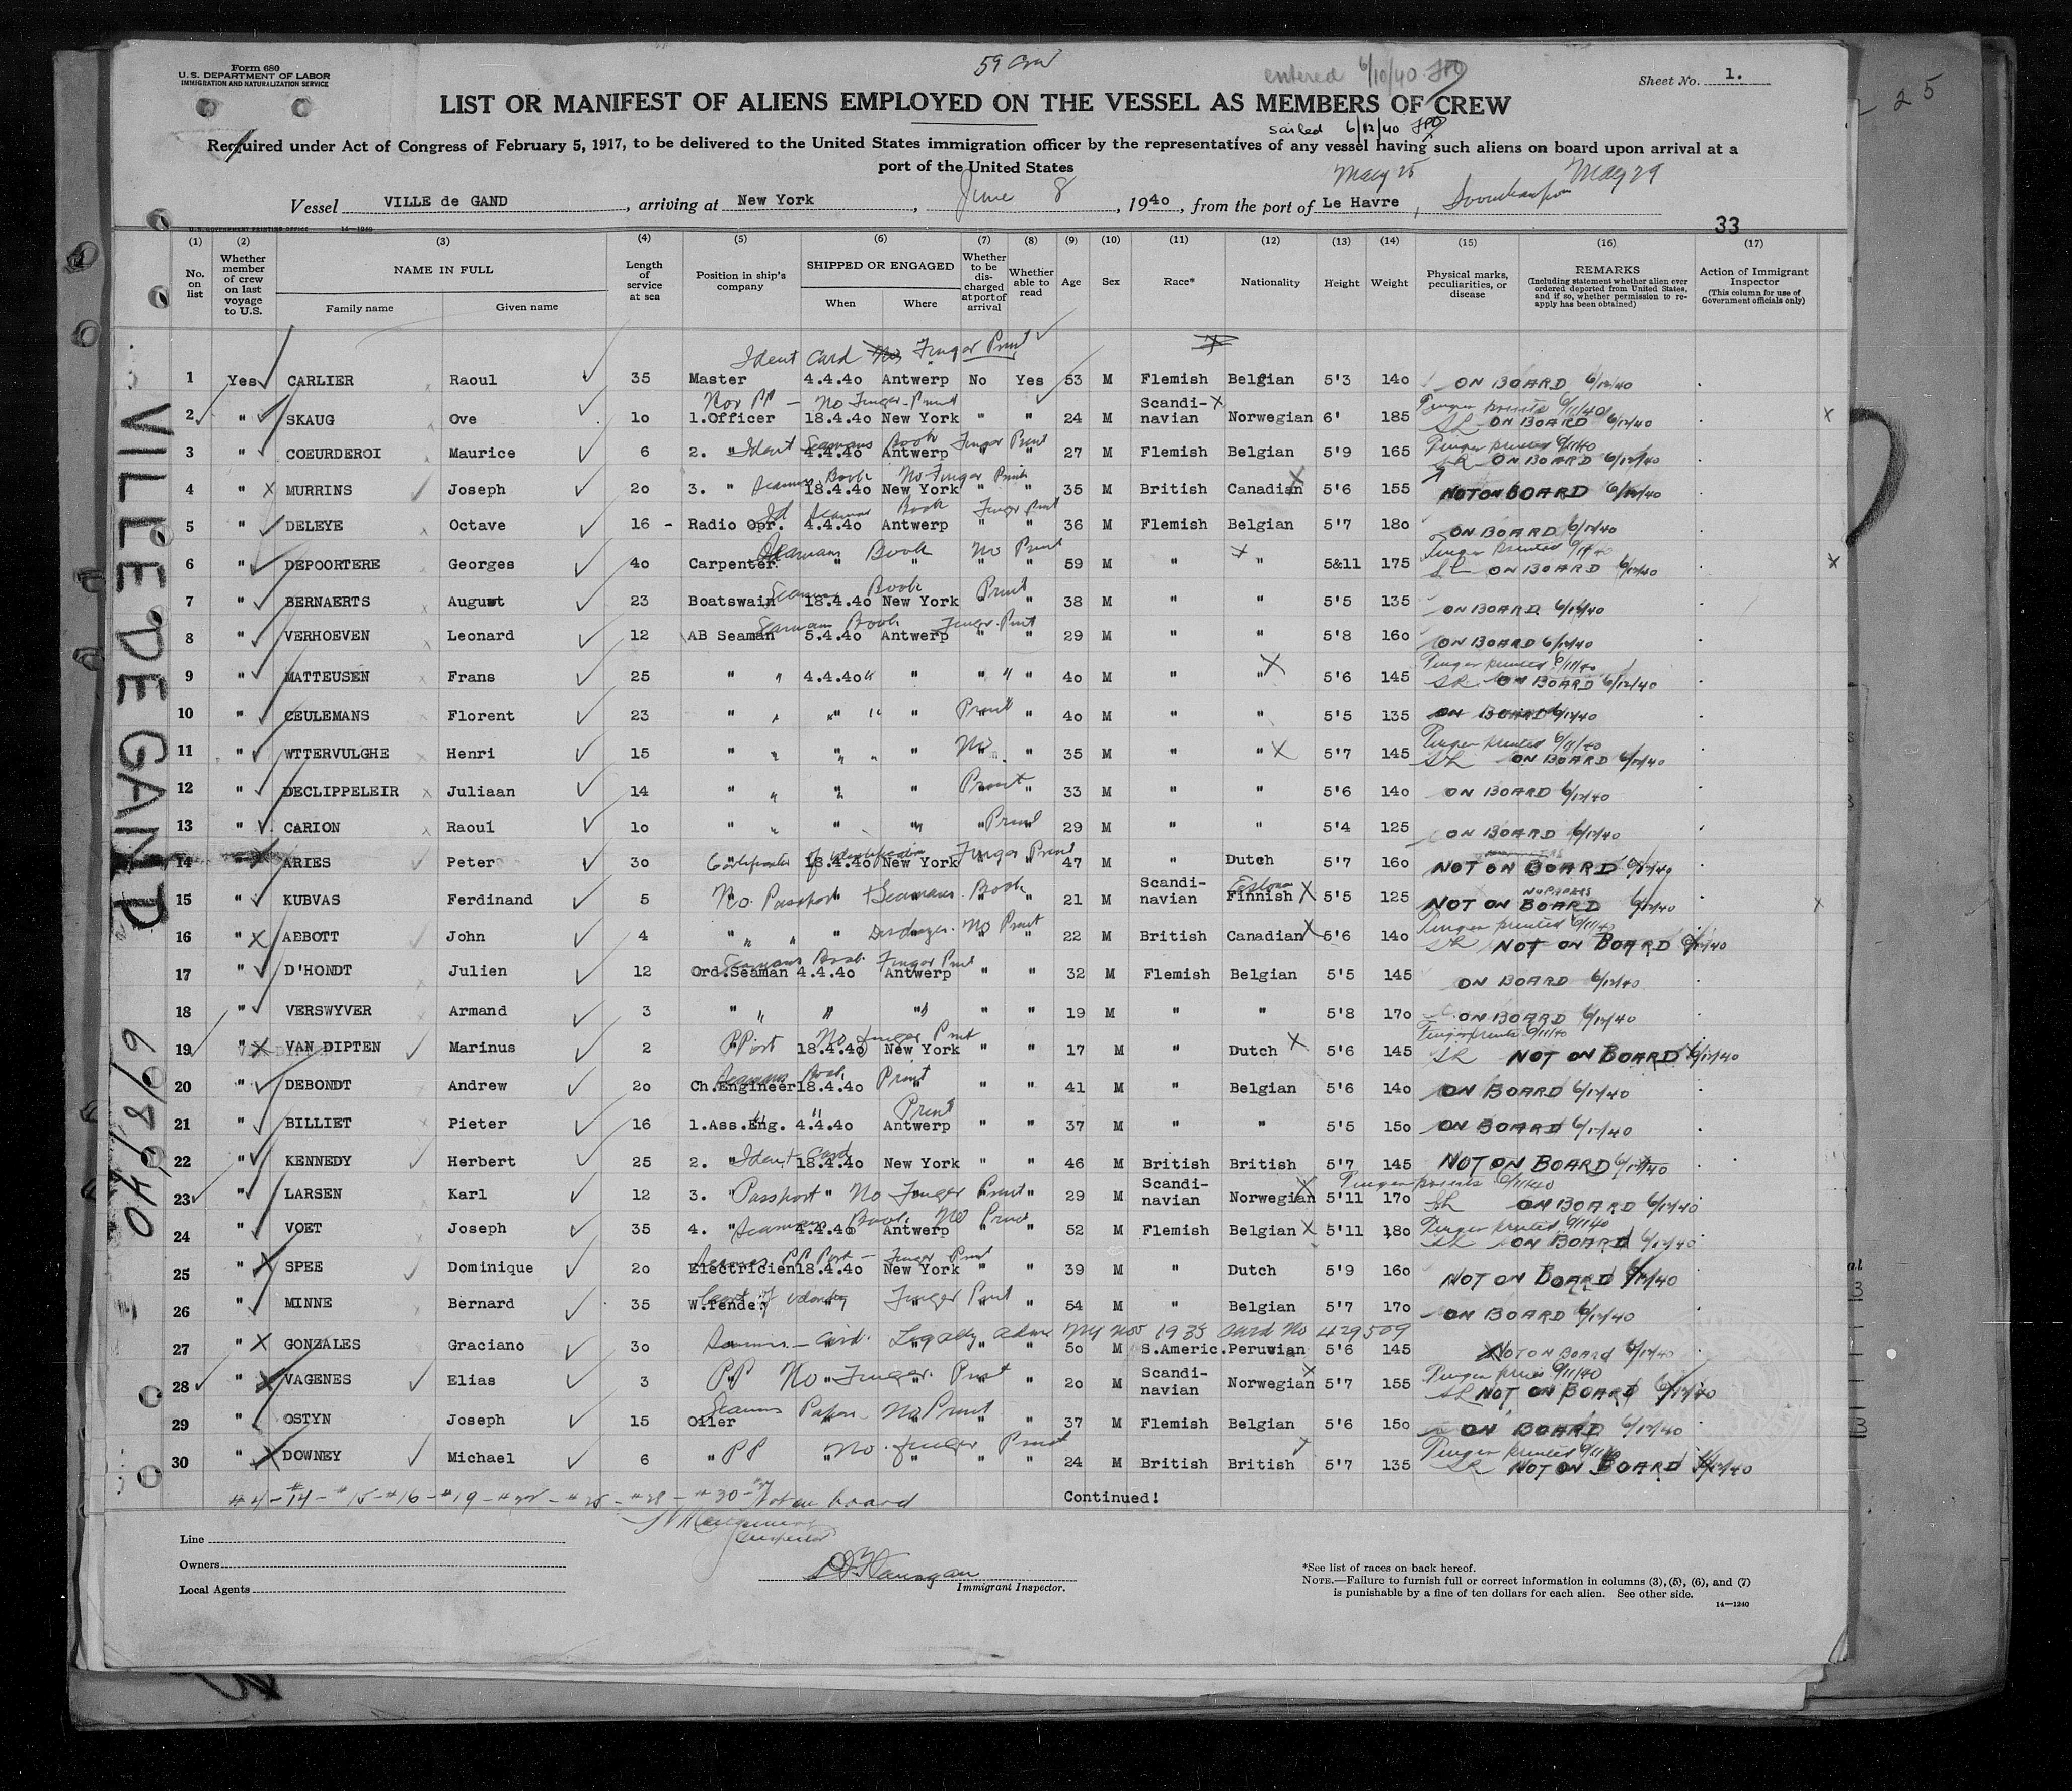 59 Crew
entered 6/10/40
25
Form 680
U.S. DEPARTMENT OF LABOR
IMMIGRATION AND NATURALIZATION SERVICE
Sheet No. 1.
LIST OR MANIFEST OF ALIENS EMPLOYED ON THE VESSEL AS MEMBERS OF CREW
sailed 6/12/40
Required under Act of Congress of February 5, 1917, to be delivered to the United States immigration officer by the representatives of any vessel having such aliens on board upon arrival at a
port of the United States
May 25 May 29
Vessel VILLE de GAND, arriving at New York, June 8, 1940, from the port of Le Havre,
33
U.S. GOVERNMENT PRINTING OFFICE 14—1240
(1) (2) (3) (4) (5) (6) (7) (8) (9) (10) (11) (12) (13) (14) (15) (16) (17)
No. on list
Whether member of crew on last voyage to U.S.
NAME IN FULL
Family name
Given name
Length of service at sea
Position in ship's company
SHIPPED OR ENGAGED
When
Where
Whether to be discharged at port of arrival
Whether able to read
Age
Sex
Race*
Nationality
Height
Weight
Physical marks, peculiarities, or disease
REMARKS
(Including statement whether alien ever ordered deported from United States, and if so, whether permission to reapply has been obtained)
Action of Immigrant Inspector
(This column for use of Government officials only)
VILLE DE GAND
6/8/40
Ident Card No Finger Print
1 Yes CARLIER Raoul 35 Master 4.4.40 Antwerp No Yes 53 M Flemish Belgian 5'3 140 ON BOARD 6/12/40
Nor PP - No Finger Print
Finger prints 6/11/40
2 " SKAUG Ove 10 1.Officer 18.4.40 New York " " 24 M Scandi-navian Norwegian 6' 185 ON BOARD 6/12/40
Ident Seamans Book Finger Print
Finger printed 6/11/40
3 " COEURDEROI Maurice 6 2. " 4.4.40 Antwerp " " 27 M Flemish Belgian 5'9 165 ON BOARD 6/12/40
Seamans Book No Finger Print
4 " MURRINS Joseph 20 3. " 18.4.40 New York " " 35 M British Canadian 5'6 155 NOT ON BOARD 6/12/40
Id Seamans Book Finger Print
5 " DELEYE Octave 16 - Radio Opr. 4.4.40 Antwerp " " 36 M Flemish Belgian 5'7 180 ON BOARD 6/12/40
Seamans Book No Print
Finger printed 6/11/40
6 " DEPOORTERE Georges 40 Carpenter " " " " 59 M " " 5&11 175 ON BOARD 6/12/40
Seamans Book Print
7 " BERNAERTS August 23 Boatswain 18.4.40 New York " " 38 M " " 5'5 135 ON BOARD 6/12/40
Seamans Book Finger Print
8 " VERHOEVEN Leonard 12 AB Seaman 5.4.40 Antwerp " " 29 M " " 5'8 160 ON BOARD 6/12/40
Finger printed 6/11/40
9 " MATTEUSEN Frans 25 " 4.4.40 " " " 40 M " " 5'6 145 ON BOARD 6/12/40
10 " CEULEMANS Florent 23 " " " Print " 40 M " " 5'5 135 ON BOARD 6/12/40
Finger printed 6/11/40
11 " WTTERVULGHE Henri 15 " " " No " 35 M " " 5'7 145 ON BOARD 6/12/40
12 " DECLIPPELEIR Juliaan 14 " " " Print " 33 M " " 5'6 140 ON BOARD 6/12/40
13 " CARION Raoul 10 " " " Print " 29 M " " 5'4 125 ON BOARD 6/12/40
Certificate of identification Finger Print
14 " ARIES Peter 30 " 18.4.40 New York " " 47 M " Dutch 5'7 160 NOT ON BOARD 6/12/40
No Passport Seamans Book
15 " KUBVAS Ferdinand 5 " " " " " 21 M Scandi-navian Finnish 5'5 125 NOT ON BOARD 6/12/40
No Print
Finger printed 6/11/40
16 " ABBOTT John 4 " " " " " 22 M British Canadian 5'6 140 NOT ON BOARD 6/12/40
Seamans Book Finger Print
17 " D'HONDT Julien 12 Ord.Seaman 4.4.40 Antwerp " " 32 M Flemish Belgian 5'5 145 ON BOARD 6/12/40
18 " VERSWYVER Armand 3 " " " " " 19 M " " 5'8 170 ON BOARD 6/12/40
PPort No Finger Print
Finger prints 6/11/40
19 " VAN DIPTEN Marinus 2 " 18.4.40 New York " " 17 M " Dutch 5'6 145 NOT ON BOARD 6/12/40
Seamans Book Print
20 " DEBONDT Andrew 20 Ch.Engineer 18.4.40 " " " 41 M " Belgian 5'6 140 ON BOARD 6/12/40
Print
21 " BILLIET Pieter 16 1.Ass.Eng. 4.4.40 Antwerp " " 37 M " " 5'5 150 ON BOARD 6/12/40
Ident Card
22 " KENNEDY Herbert 25 2. " 18.4.40 New York " " 46 M British British 5'7 145 NOT ON BOARD 6/12/40
Finger prints 6/11/40
23 " LARSEN Karl 12 3. " Passport " No Finger Print " 29 M Scandi-navian Norwegian 5'11 170 ON BOARD 6/12/40
Seamans Book No Print
Finger printed 6/11/40
24 " VOET Joseph 35 4. " 4.4.40 Antwerp " " 52 M Flemish Belgian 5'11 180 ON BOARD 6/12/40
Seamans PP Port - Finger Print
25 " SPEE Dominique 20 Electricien 18.4.40 New York " " 39 M " Dutch 5'9 160 NOT ON BOARD 6/12/40
Finger Print
26 " MINNE Bernard 35 W.Tender " " " " 54 M " Belgian 5'7 170 ON BOARD 6/12/40
Card Legally Nov 1935 Card No 429509
27 " GONZALES Graciano 30 " " " " " 50 M S.Americ. Peruvian 5'6 145 NOT ON BOARD 6/12/40
PP No Finger Print
28 " VAGENES Elias 3 " " " " " 20 M Scandi-navian Norwegian 5'7 155 NOT ON BOARD 6/12/40
Seamans Papers No Print
29 " OSTYN Joseph 15 Oiler " " " " 37 M Flemish Belgian 5'6 150 ON BOARD 6/12/40
PP No Finger Print
Finger printed 6/11/40
30 " DOWNEY Michael 6 " " " " " 24 M British British 5'7 135 NOT ON BOARD 6/12/40
#4 - #14 - #15 - #16 - #19 - #22 - #25 - #28 - #30 - #27 Not on board
Continued!
Inspector
Line
Owners
Local Agents
Immigrant Inspector.
*See list of races on back hereof.
NOTE.—Failure to furnish full or correct information in columns (3), (5), (6), and (7)
is punishable by a fine of ten dollars for each alien. See other side.
14—1240